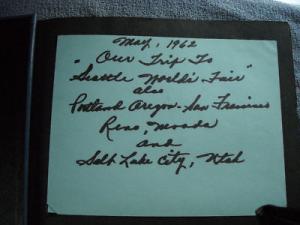 May, 1962
"Our Trip To
Seattle World's Fair"
also
Portland Oregon - San Francisco
Reno, Nevada
and
Salt Lake City, Utah